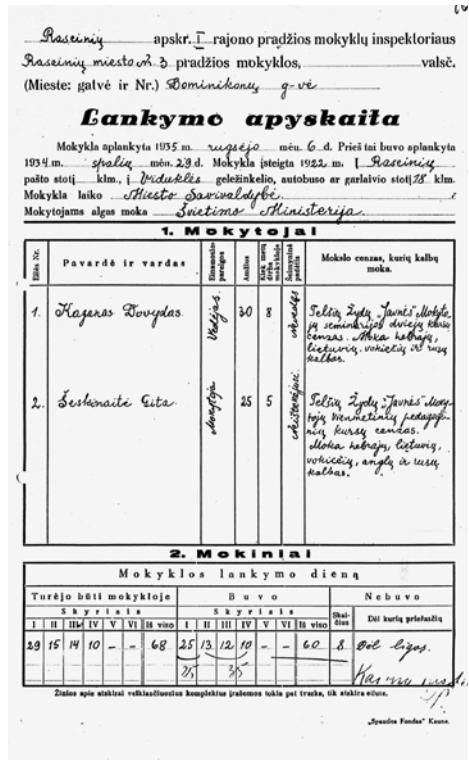 Raseinių apskr. I rajono pradžios mokyklų inspektoriaus
Raseinių miesto № 3 pradžios mokyklos, valsč.
(Mieste: gatvė ir Nr.) Dominikonų g-vė
Lankymo apyskaita
Mokykla aplankyta 1935 m. rugsėjo mėn. 6 d. Prieš tai buvo aplankyta
1934 m. spalių mėn. 29 d. Mokykla įsteigta 1922 m. Į Raseinių
pašto stotį klm., į Viduklės geležinkelio, autobuso ar garlaivio stotį 18 klm.
Mokykla laiko Miesto Savivaldybė.
Mokytojams algas moka Švietimo Ministerija.
1. Mokytojai
Eilės Nr. Pavardė ir vardas Einamosios pareigos Amžius Kiek metų dirba mokykloje Šeimyninė padėtis Mokslo cenzas, kurių kalbų moka.
1. Kazeras Dovydas. Vedėjas. 30 8 Nevedęs Telšių Žydų „Javnės" Mokyto-
jų seminarijos dviejų kursų
cenzas. Moka hebrajų,
lietuvių, vokiečių ir rusų
kalbas.
2. Gita. Mokytoja 25 5 Neištekėjusi. Telšių Žydų „Javnės" Moky-
tojų vienmetinių pedagogi-
nių kursų cenzas.
Moka hebrajų, lietuvių,
vokiečių, anglų ir rusų
kalbas.
2. Mokiniai
Mokyklos lankymo dieną
Turėjo būti mokykloje Buvo Nebuvo
Skyriais Skyriais Skaičius Dėl kurių priežasčių
I II III IV V VI Iš viso I II III IV V VI Iš viso
29 15 14 10 - - 68 25 13 12 10 - - 60 8 Dėl ligos.
25 35
Žinios apie atskirai veikiančiuosius komplektus įrašomos tokia pat tvarka, tik atskira eilute.
„Spaudos Fondas" Kaune.